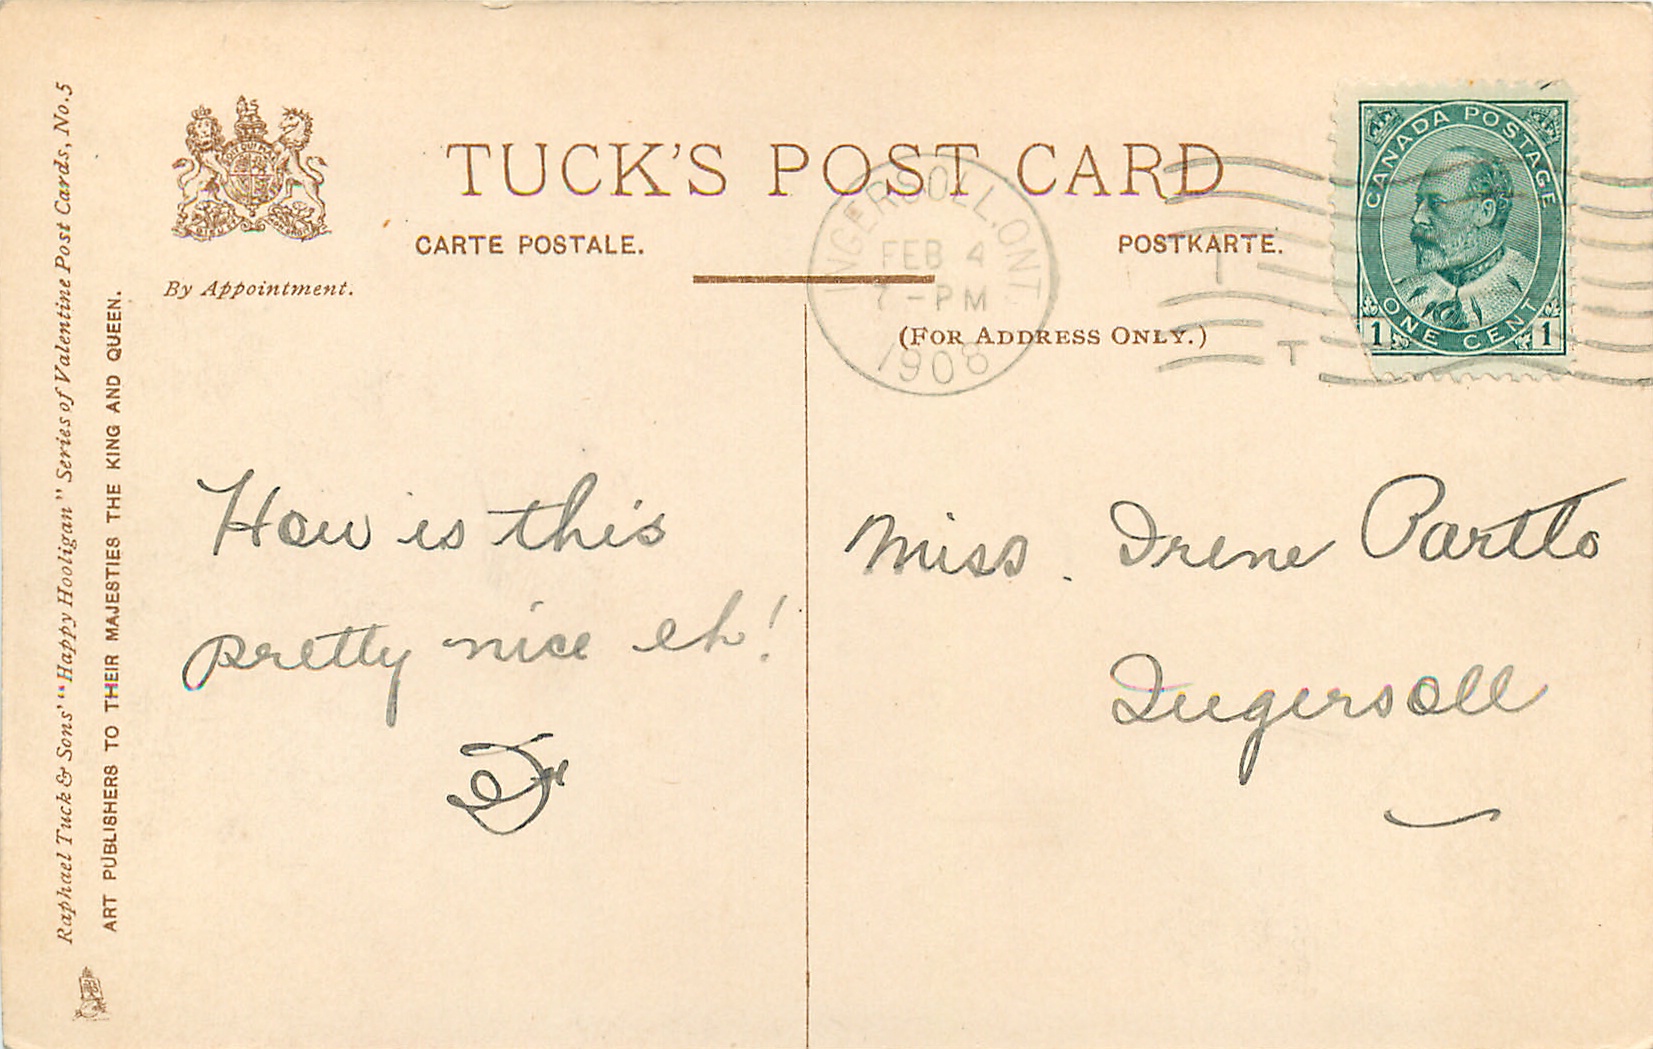 TUCK'S POST CARD
CARTE POSTALE.
POSTKARTE.
By Appointment.
(FOR ADDRESS ONLY.)
INGERSOLL. ONT.
FEB 4
7-PM
1908
CANADA POSTAGE
ONE CENT
1 1
How is this
pretty nice eh!
Miss. Irene Partlo
Ingersoll
Raphael Tuck & Sons' "Happy Hooligan" Series of Valentine Post Cards, No. 5
ART PUBLISHERS TO THEIR MAJESTIES THE KING AND QUEEN.